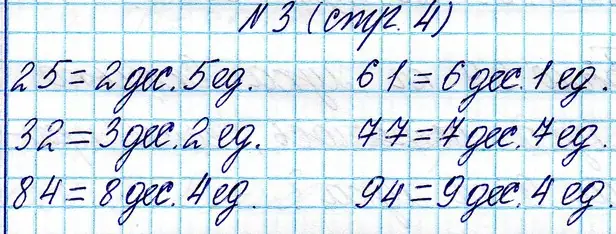 №3 (стр. 4)
25=2дес. 5ед. 61=6дес. 1ед.
32=3дес. 2ед. 77=7дес. 7ед.
84=8дес. 4ед. 94=9дес. 4ед.